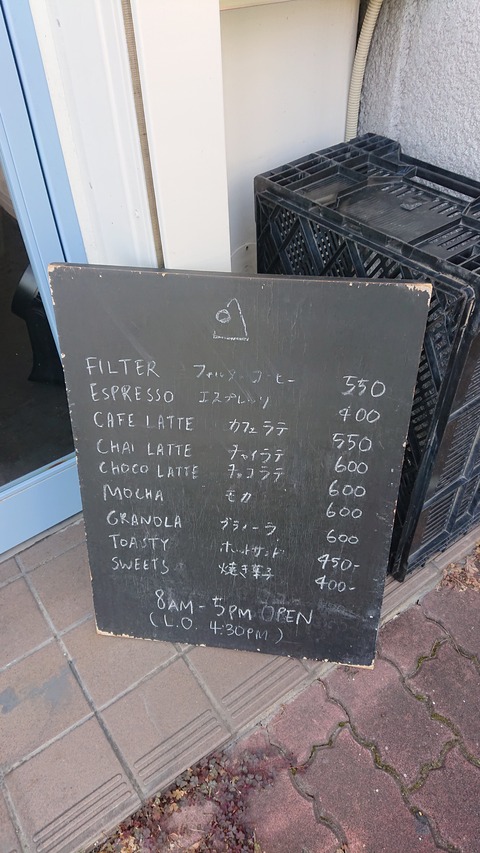 FILTER フィルターコーヒー 550
ESPRESSO エスプレッソ 400
CAFE LATTE カフェラテ 550
CHAI LATTE チャイラテ 600
CHOCO LATTE チョコラテ 600
MOCHA モカ 600
GRANOLA グラノーラ 600
TOASTY ホットサンド 450-
SWEETS 焼き菓子 400-
8AM - 5PM OPEN
(L.O. 4:30PM)